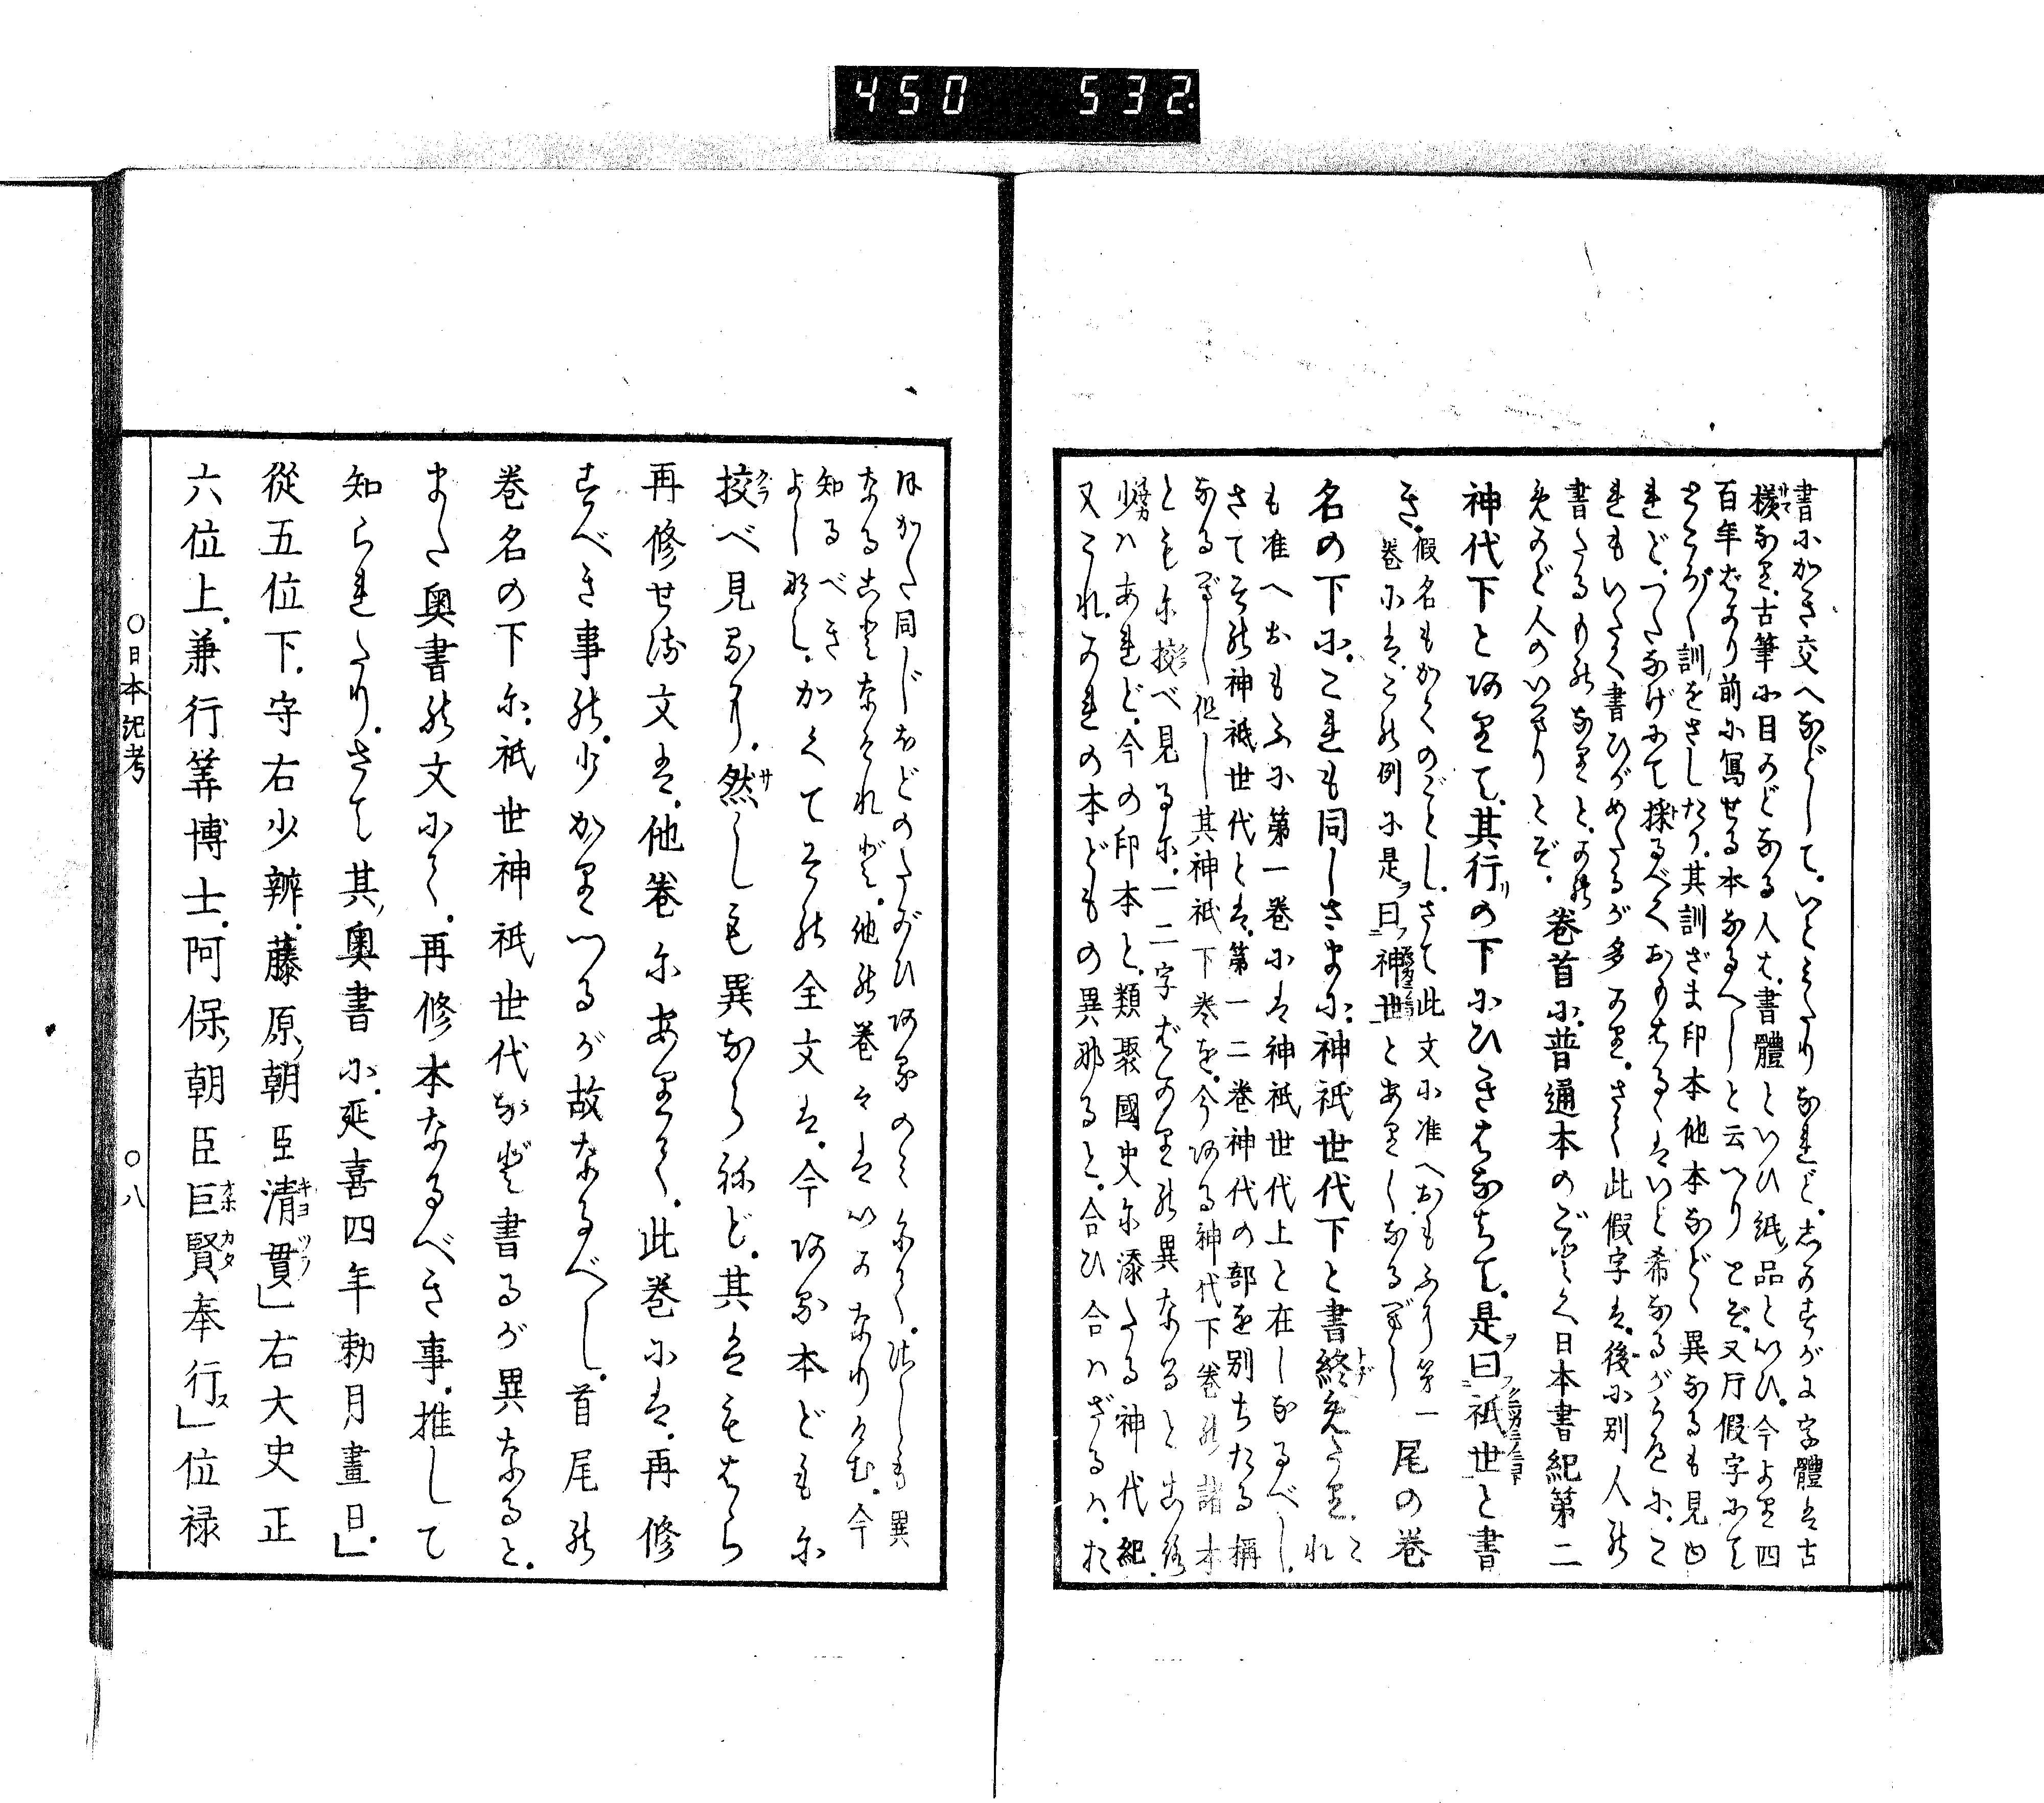 450 532
書にかき交へなどして。いとみだりなれど。志かすがに字體は古
横なり。古筆に目かどなる人は。書體といひ紙品といひ。今より四
百年ばかり前に寫せる本なるべしと云へりとぞ。又片假字にて
ところ〴〵訓をさしたり。其訓ざま印本他本など〻異なるも見ゆ
れど。つたなげにて採るべくおもはる〻はいと希なるがうへに。こ
れもいたく書ひがめたるが多かり。さて此假字は。後に別人の
書たるものなりと。かの
めかど人のいへりとぞ。
卷首に。普通本のごとく日本書紀第二
神代下とありて。其行の下にひきはなちて。是曰祇世と書
き。
假名もかくのごとし。さて此文に准へおもふに第一
卷には。この例に是曰神世とありしなるべし
尾の卷
名の下に。これも同しさまに。神祇世代下と書終めたり。
これ
も准へおもふに第一卷には神祇世代上と在しなるべし。
さてその神祇世代とは。第一二卷神代の部を別ちたる稱
なるべし但し其神祇下卷を。今ある神代下卷の諸本
ともに挍べ見るに。一二字ばかりの異なると ころ
少ハあれど。今の印本と。類聚國史に添たる神代紀。
又これかれの本どもの異那ると。合ひ合ハざるハ。お
ほかた同じほどのたがひあるのみにて。はしも異
なることなそれど。他の卷々はいかなりけむ。今
知るべき
よし那し。かくてその全文は。今ある本どもに
挍べ見るに。然しも異ならねど。其はもはら
再修せる文は。他卷にありて。此卷には。再修
すべき事の。少かりつるが故なるべし。首尾の
卷名の下に。祇世神祇世代など書るが異なると。
また奥書の文にて。再修本なるべき事。推して
知られたり。さて其奥書に。延喜四年勅月畫日。」
從五位下。守右少辨。藤原朝臣清貫」右大史正
六位上。兼行筭博士。阿保朝臣巨賢奉行」位禄
○日本紀考 ○八